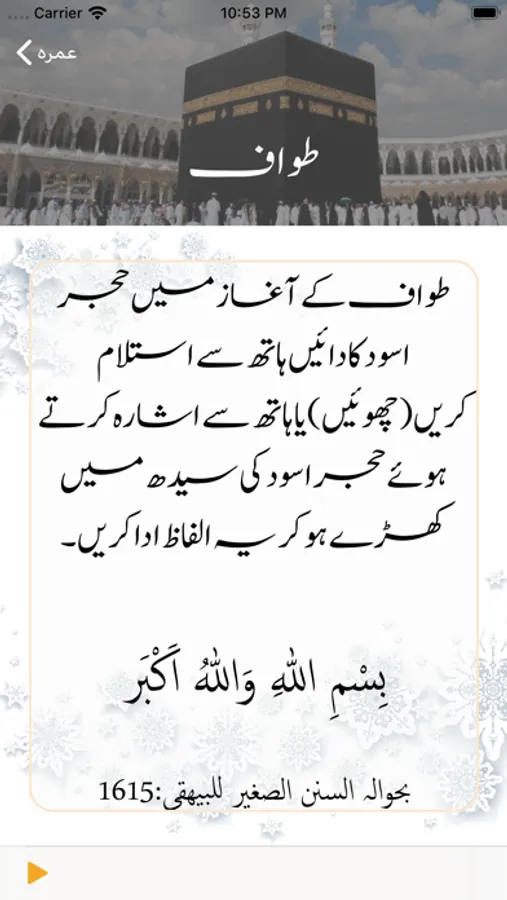 Carrier 10:53 PM
عمرہ
طواف
طواف کے آغاز میں حجر
اسود کا دائیں ہاتھ سے استلام
کریں(چھوئیں)یا ہاتھ سے اشارہ کرتے
ہوئے حجر اسود کی سیدھ میں
کھڑے ہو کر یہ الفاظ ادا کریں۔
بِسْمِ اللهِ وَاللهُ أَكْبَر
بحوالہ السنن الصغیر للبیھقی:1615